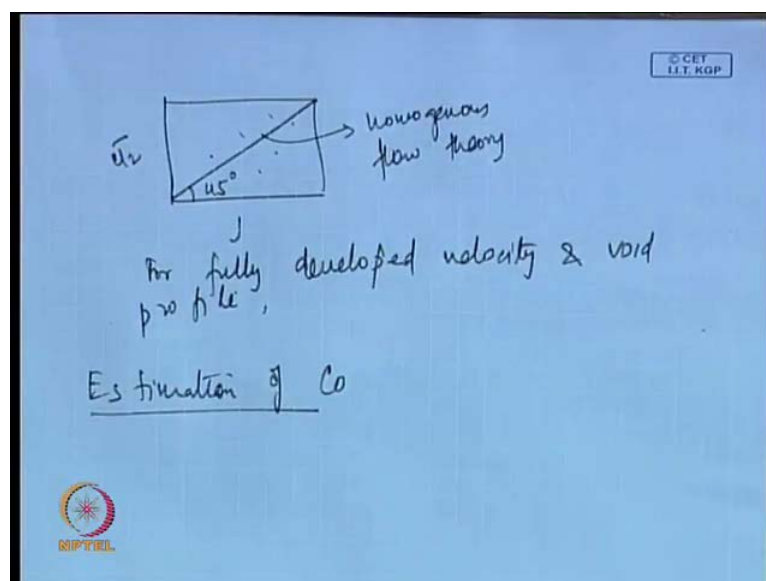 © CET
I.I.T. KGP
ū₂
45°
homogenous
flow theory
J
For fully developed velocity & void
profile,
Estimation of Co
NPTEL